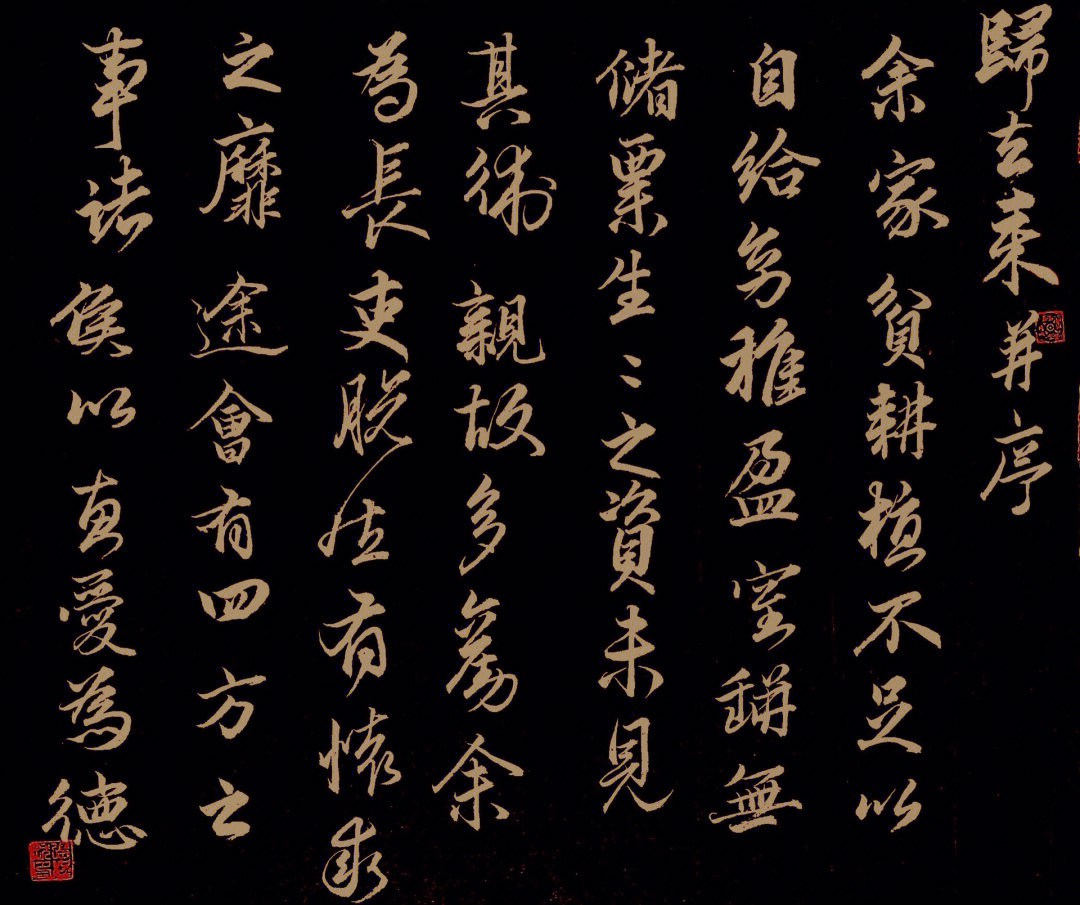 歸去来并序
余家貧耕植不足以
自給幼稚盈室缾無
儲粟生〻之資未見
其術親故多勸余
為長吏脱然有懷求
之靡途會有四方之
事諸侯以惠愛為德